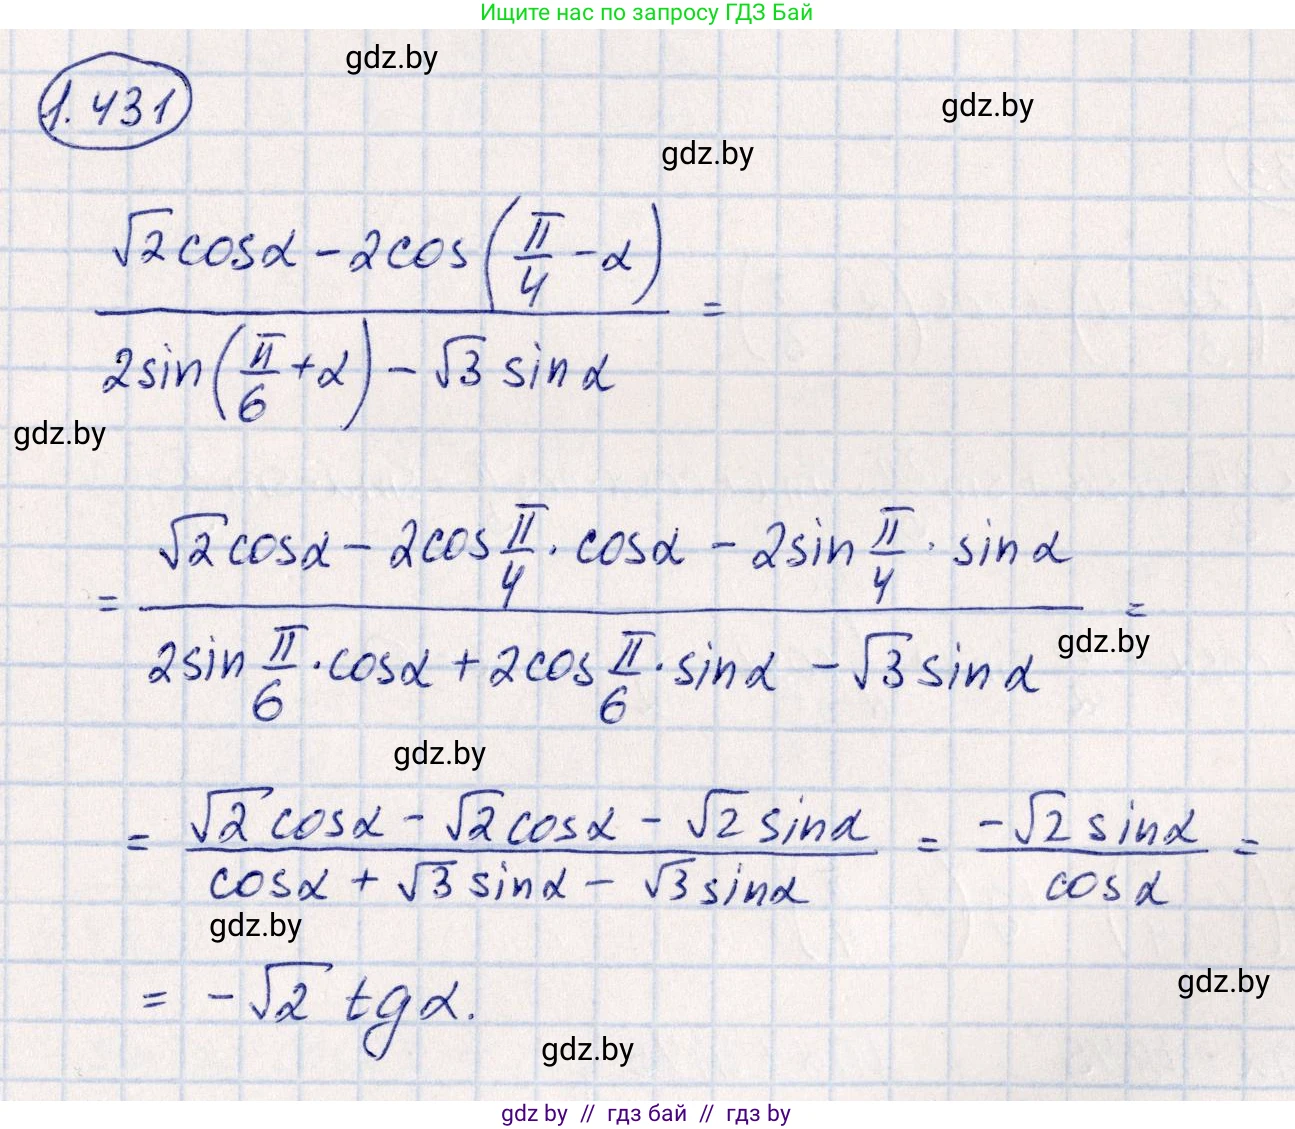 Ищите нас по запросу ГДЗ Бай
gdz.by
1.431
gdz.by
gdz.by
√2cosα - 2cos(π/4 - α)
=
2sin(π/6 + α) - √3 sinα
gdz.by
√2cosα - 2cos π/4 · cosα - 2sin π/4 · sinα
= =
2sin π/6 · cosα + 2cos π/6 · sinα - √3 sinα
gdz.by
gdz.by
= (√2cosα - √2cosα - √2 sinα)/(cosα + √3 sinα - √3 sinα) = (-√2 sinα)/(cosα) =
gdz.by
= -√2 tgα.
gdz.by
gdz.by
gdz by // гдз бай // гдз by